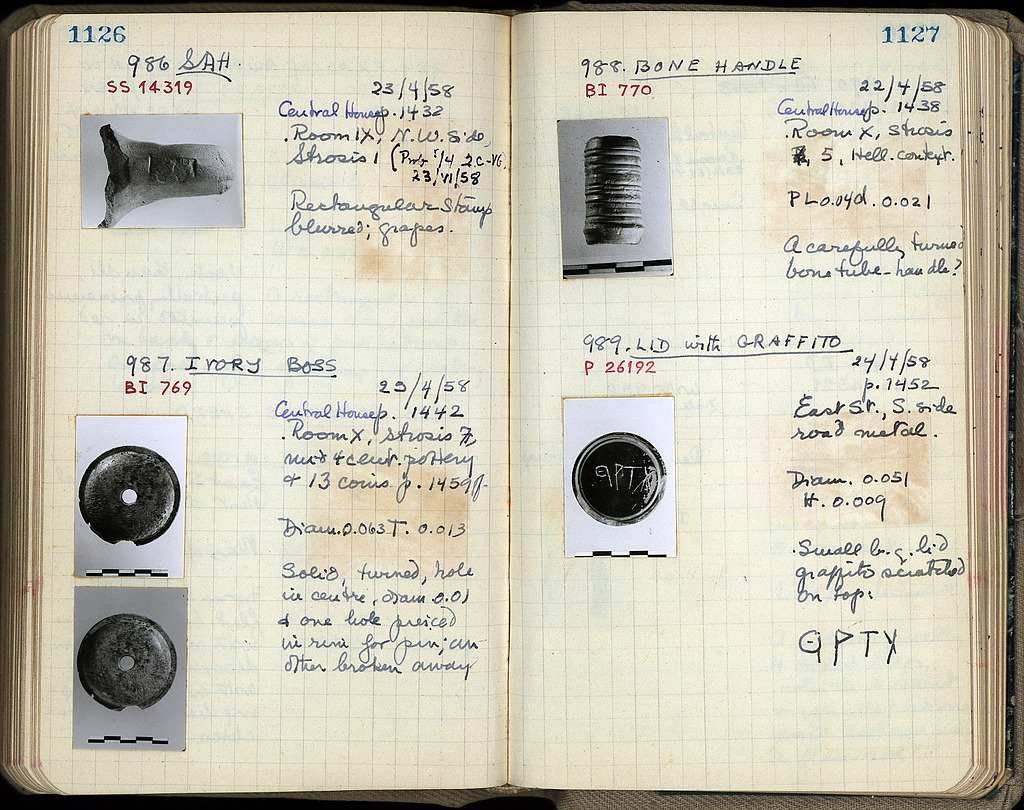 1126
986 SAH.
SS 14319
23/4/58
Central House p. 1432
. Room IX, N.W. Side,
Strosis 1 (Prob. 1/4 2.C-VG.
23/VI/58
Rectangular Stamp
blurred; grapes.
987. IVORY BOSS
BI 769
23/4/58
Central House p. 1442
. Room X, Strosis 7,
mid 4 cent. pottery
& 13 coins p. 1459f.
Diam. 0.063 T. 0.013
Solid, turned, hole
in centre, diam 0.01
& one hole preiced
in rim for pin; an
other broken away
1127
988. BONE HANDLE
BI 770
22/4/58
Central House p. 1438
. Room X, Strosis
5, Hell. context.
P L 0.04 d. 0.021
A carefully turned
bone tube-handle?
989. LID with GRAFFITO
P 26192
24/4/58
p. 1452
East St., S. side
road metal.
Diam. 0.051
H. 0.009
. Small b.g. lid
graffito scratched
on top:
ϘΡΤΥ